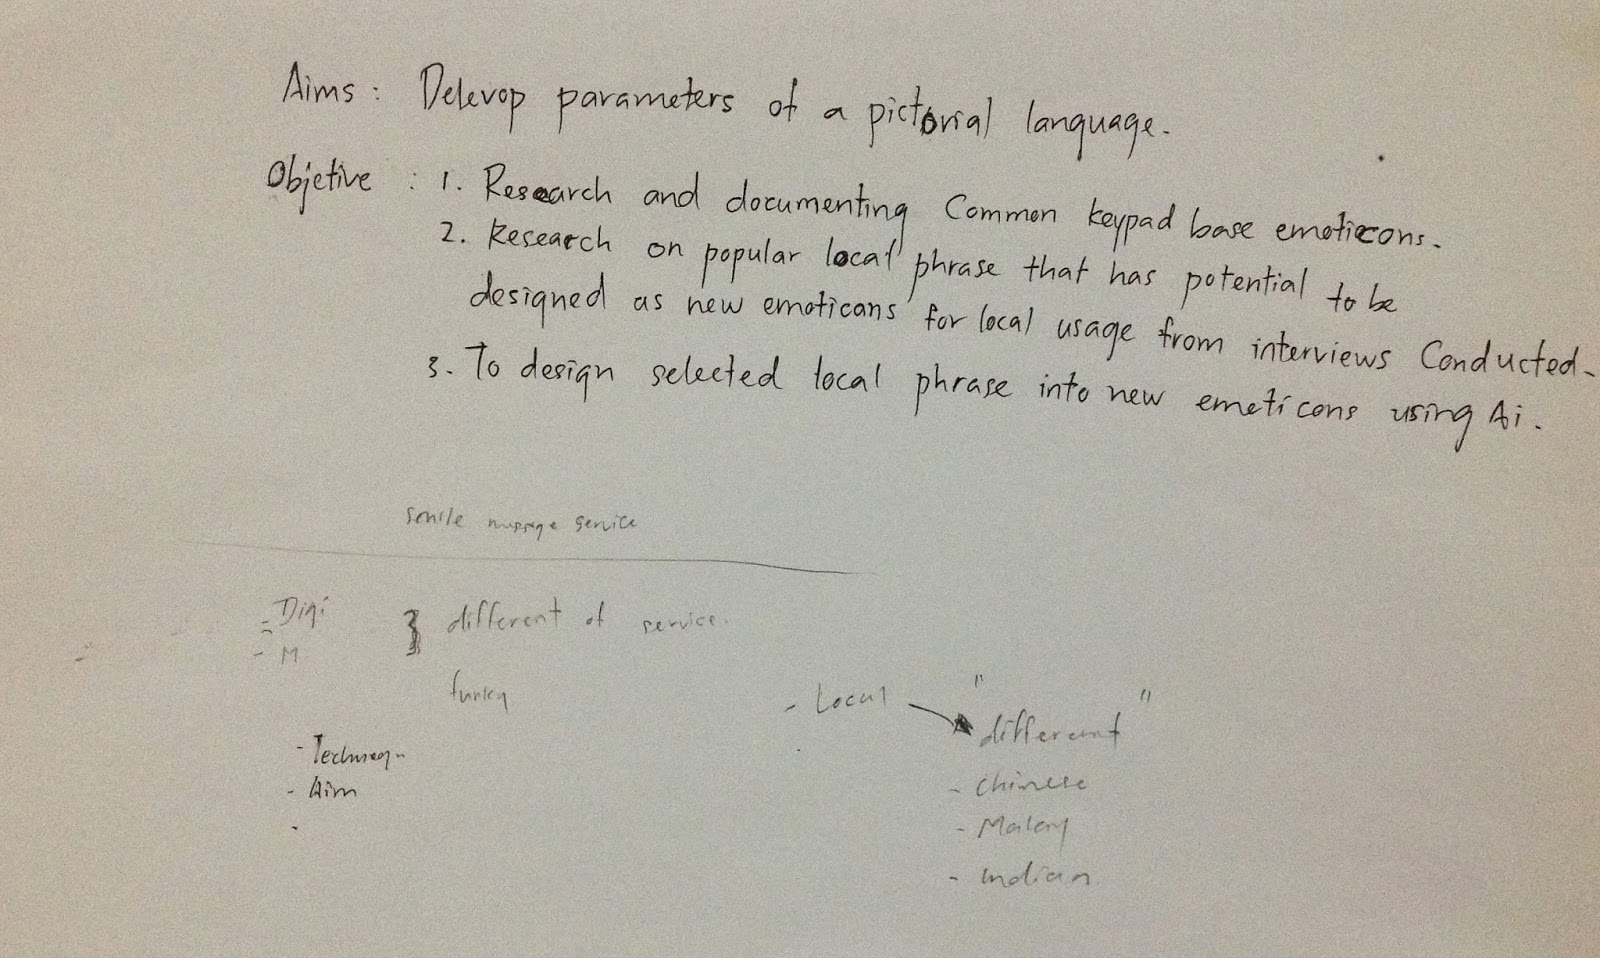 Aims : Delevop parameters of a pictorial language.
Objetive : 1. Research and documenting Common keypad base emoticons.
2. Research on popular local phrase that has potential to be
designed as new emoticans for local usage from interviews Conducted.
3. To design selected local phrase into new emoticons using Ai.
service
- Digi } different of service.
- M
funky
- Local → " different "
- Aim
- Chinese
- Malay
- Indian